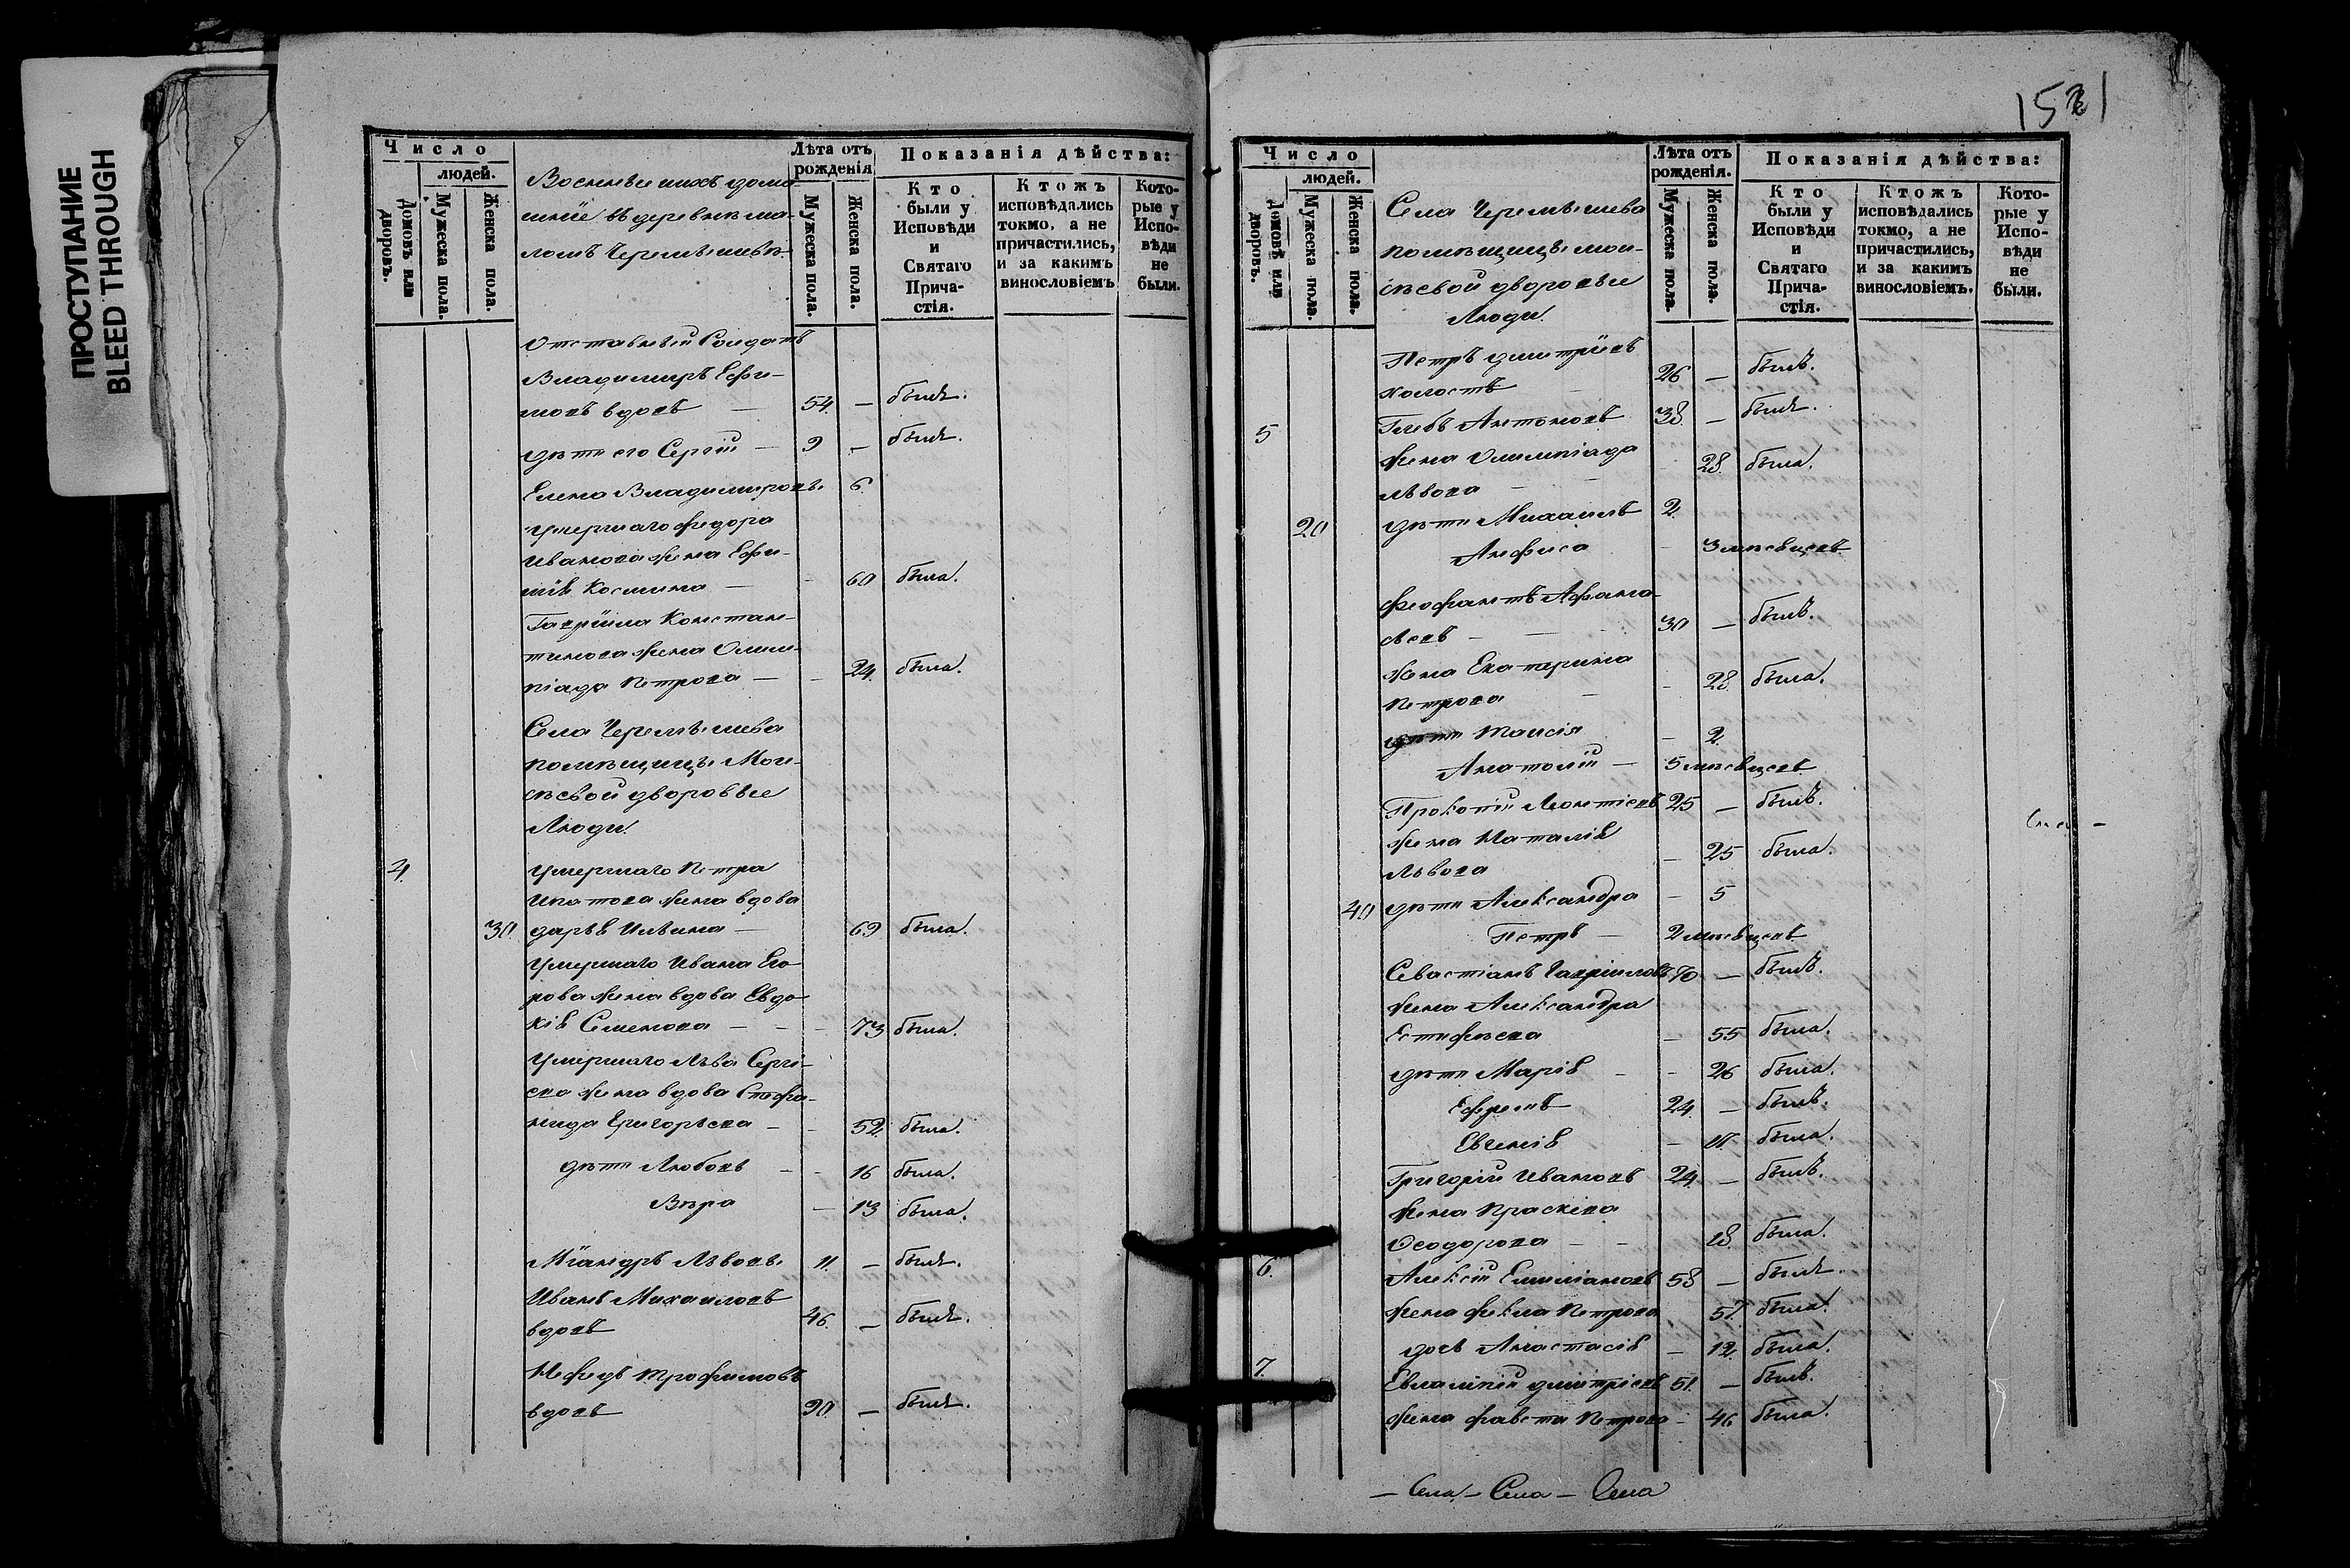 ПРОСТУПАНИЕ
BLEED THROUGH
Число
людей.
Домовъ или дворовъ.
Мужеска пола.
Женска пола.
Военные ихъ дома-
шніе въ деревнѣ ма-
ломъ Черемышевѣ.
Лѣта отъ рожденія
Мужеска пола.
Женска пола.
Показанія дѣйства:
Кто были у Исповѣди и Святаго Прича-стія.
Ктожъ исповѣдались токмо, а не причастились, и за какимъ винословіемъ
Кото-рые у Испо-вѣди не были.
Отставный Солдатъ
Владимиръ Ефи-
мовъ вдовъ — 54. — былъ.
дѣти его Сергій — 9 — былъ.
Елена Владимировы 6.
умершаго Федора
Иванова жена Ефи-
мія Космина — - 60 была.
Гавріила Констан-
тинова жена Олим-
піада Петрова — - 24. была.
Села Черемышева
помѣщицы Мои-
сѣевой дворовые
Люди.
4. умершаго Петра
Ипатова жена вдова
30. Дарья Ильина — 69 была.
умершаго Ивана Его-
рова жена вдова Евдо-
кія Семенова — - - 73 была.
умершаго Льва Сергі-
ева жена вдова Стефа-
нида Григорьева — - 52. была.
дѣти Любовь - - 16 была.
Вѣра - 13 была.
Міандръ Львовъ. 11. — былъ.
Иванъ Михаиловъ
вдовъ 46. — былъ.
Мефодъ Трофимовъ
вдовъ 90. — былъ.
152
Число
людей.
Домовъ или дворовъ.
Мужеска пола.
Женска пола.
Села Черемышева
помѣщицы мои-
сѣевой дворовые
Люди.
Лѣта отъ рожденія.
Мужеска пола.
Женска пола.
Показанія дѣйства:
Кто были у Исповѣди и Святаго Прича-стія.
Ктожъ исповѣдались токмо, а не причастились, и за какимъ винословіемъ.
Кото-рые у Испо-вѣди не были.
Петръ Дмитріевъ
холостъ 26 — былъ.
5 Глебъ Антоновъ 38. — былъ.
жена Олимпіада
Львова - - 28. была.
20 дѣти Михаилъ 2.
Анфиса - 3 мѣсяцевъ
Феофантъ Афана-
сьевъ - 30 — былъ.
жена Екатерина
Петрова - - 28. была.
дѣти Таисія - 2.
Анатолій — 5 мѣсяцевъ
Прокопій Леонтіевъ 25 — былъ.
жена Наталія
Львова — 25 была.
40 дѣти Александра - 5
Петръ — 2 мѣсяцевъ
Севастіанъ Гавріиловъ 70 — былъ.
жена Александра
Естифѣева - 55 была.
дѣти Марія - - 26 была.
Ефремъ 24. — былъ.
Евгенія - 17. была.
Григорій Ивановъ 24. — былъ.
жена Праскева
Ѳеодорова - - 28. была.
6. Алексій Емиліановъ 58 — былъ.
жена Фекла Петрова 57. была.
дочь Анастасія - 12. была.
7. Евлампій Дмитріевъ 51. — былъ.
жена Фавста Петрова - 46 была.
— Села — Села — Села